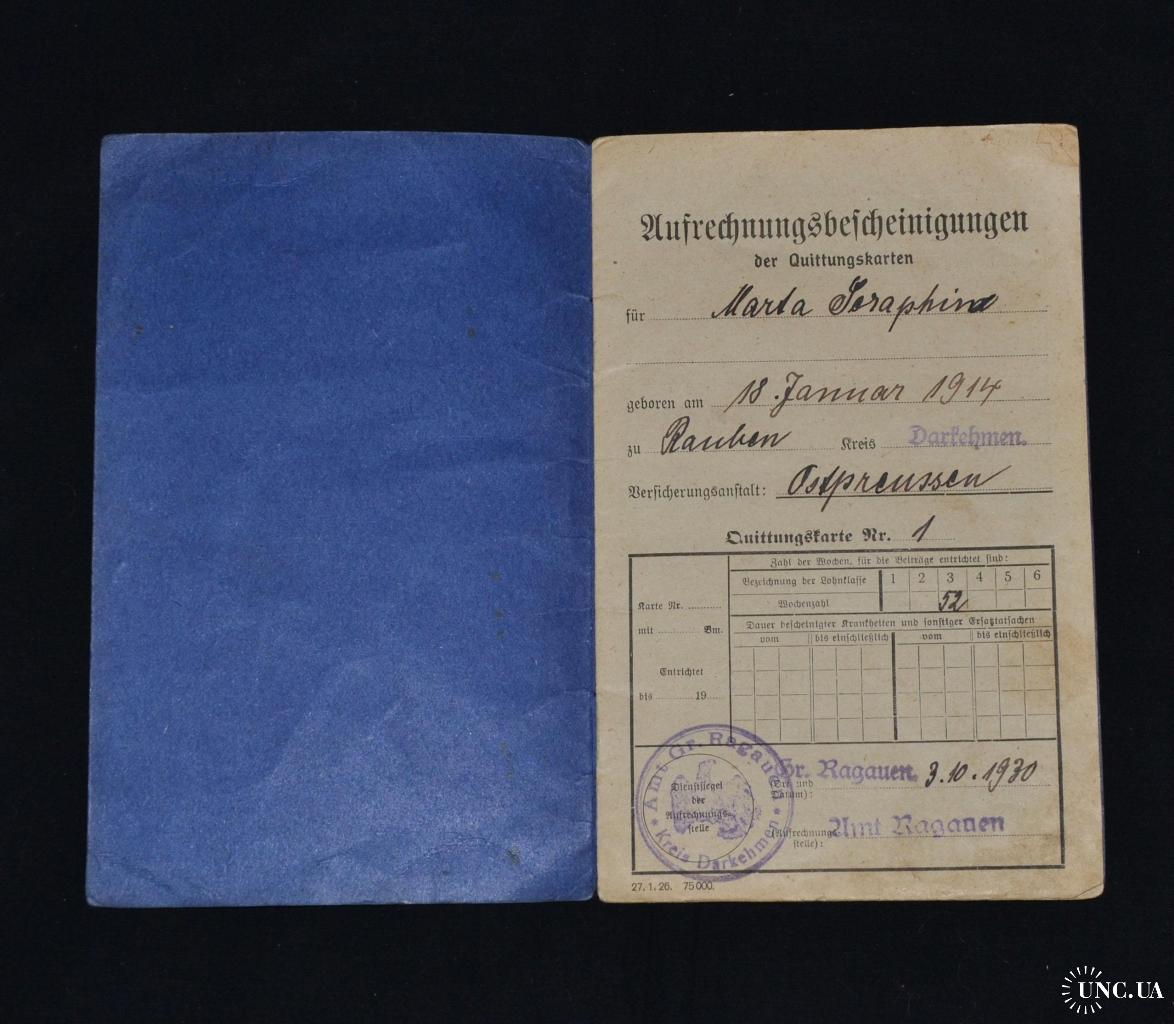 Aufrechnungsbescheinigungen
der Quittungskarten
für Marta Seraphin
geboren am 18. Januar 1914
zu Rauben Kreis Darkehmen.
Versicherungsanstalt: Ostpreussen
Quittungskarte Nr. 1
Zahl der Wochen, für die Beiträge entrichtet sind:
Bezeichnung der Lohnklasse 1 2 3 4 5 6
Wochenzahl 52
Karte Nr.
mit Bm.
Entrichtet
bis 19
Dauer bescheinigter Krankheiten und sonstiger Ersatztatsachen
vom bis einschließlich vom bis einschließlich
Amt Gr. Ragauen
* Kreis Darkehmen *
Dienstsiegel
der
Aufrechnungs-
stelle
Gr. Ragauen, 3.10.1930
(Ort und
Datum):
Amt Ragauen
(Aufrechnungs-
stelle):
27. 1. 26. 75 000.
UNC.UA